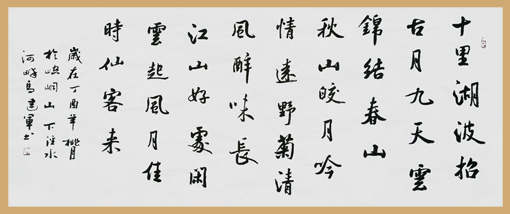 十里湖波招
古月九天雲
錦結春山
秋山皎月吟
情遠野菊清
風醉味長
江山好處閑
雲起風月佳
時仙客来
歲在丁酉年桃月
於崆峒山下涇水
河畔馬建軍书